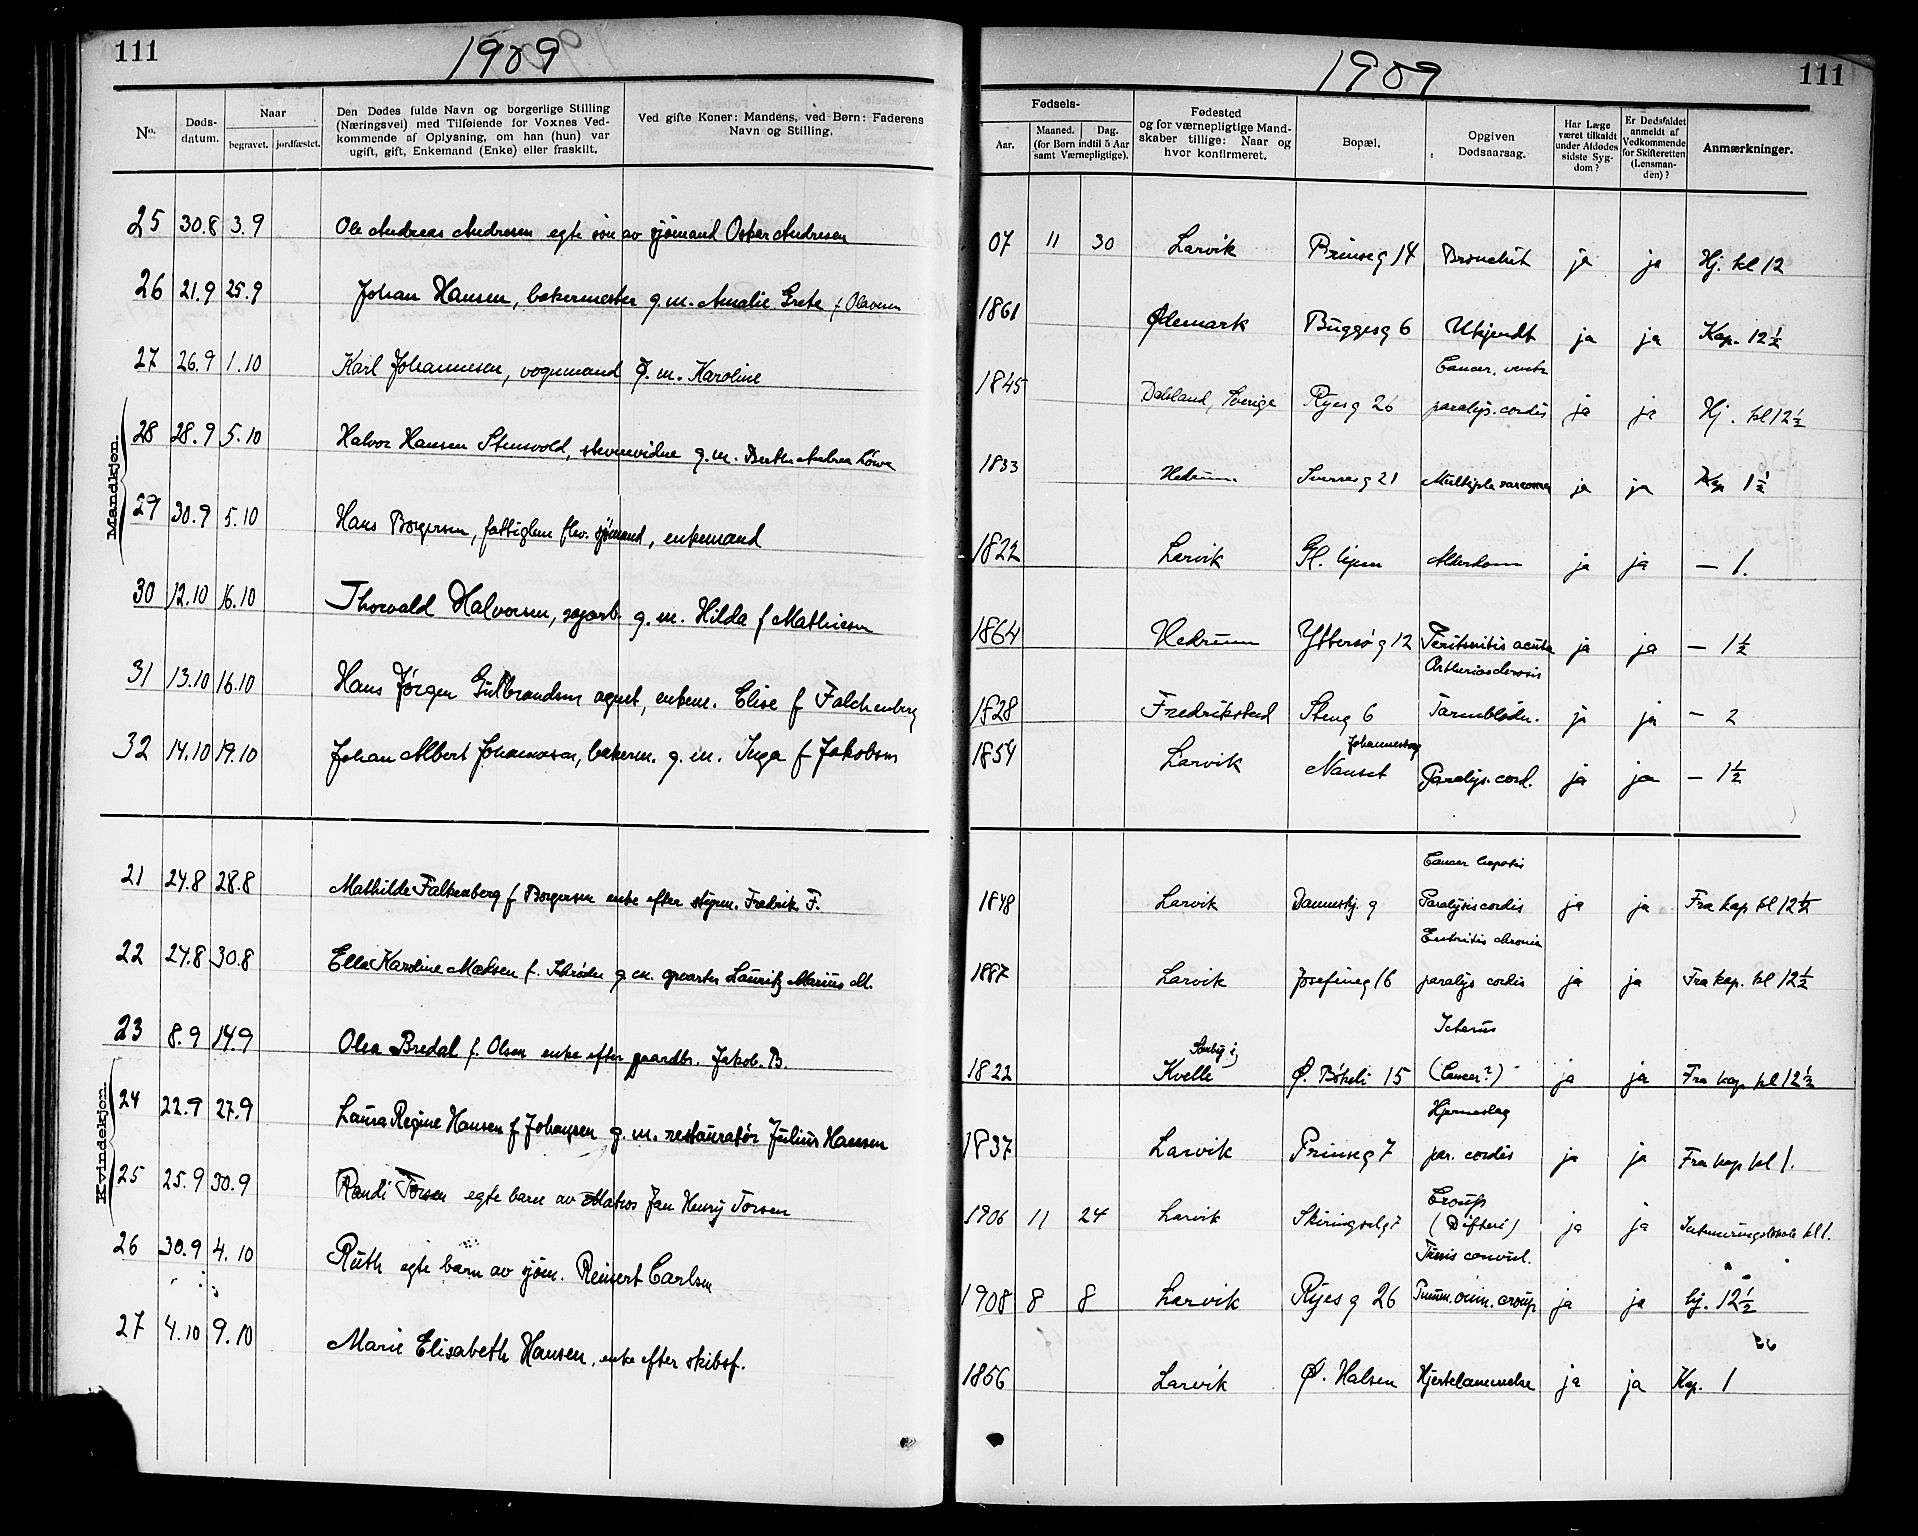 111
1909
1909
111
No.
Døds-
datum.
Naar
begravet. jordfæstet.
Den Dødes fulde Navn og borgerlige Stilling
(Næringsvei) med Tilføiende for Voxnes Ved-
kommende af Oplysning, om han (hun) var
ugift, gift, Enkemand (Enke) eller fraskilt.
Ved gifte Koner: Mandens, ved Børn: Faderens
Navn og Stilling.
Fødsels-
Aar.
Maaned. Dag.
(for Børn indtil 5 Aar
samt Værnepligtige).
Fødested
og for værnepligtige Mand-
skaber tillige: Naar og
hvor konfirmeret.
Bopæl.
Opgiven
Dødsaarsag.
Har Læge
været tilkaldt
under Afdødes
sidste Syg-
dom?
Er Dødsfaldet
anmeldt af
Vedkommende
for Skifteretten
(Lensman-
den)?
Anmærkninger.
Mandkjøn.
25 30.8 3.9 Ole Andreas Andresen egte søn av sjømand Oskar Andresen 07 11 30 Larvik Prinseg 14 Bronchit ja ja Hj. kl 12
26 21.9 25.9 Johan Hansen, bakermester g.m. Amalie Grete f Olavsen 1861 Ødemark Buggesg 6 Ukjendt ja ja Kap. 12 1/2
27 26.9 1.10 Karl Johannesen, vognmand g.m. Karoline 1845 Dalsland, Sverige Ryesg 26 Cancer. ventr.
paralys. cordis ja ja Hj. kl 12 1/2
28 28.9 5.10 Halvor Hansen Stensvold, g.m. Berthe Andrea 1833 Hedrum Sverresg 21 Multiple sarcomer ja ja Kap 1 1/2
29 30.9 5.10 Hans Borgersen, fattiglem fhv. sjømand, enkemand 1822 Larvik Gl. hjem Alderdom ja ja — 1.
30 12.10 16.10 Thorvald Halvorsen, g.m. Hilda f Mathiesen 1864 Hedrum Yttersø g 12 Peritonitis acuta ja ja — 1 1/2
31 13.10 16.10 Hans Jørgen Gulbrandsen agent, enkem. Elise f Falchenberg 1828 Fredrikstad Steng 6 Arteriosclerosis
Tarmblødn. ja ja — 2
32 14.10 19.10 Johan Albert Johannesen, bakerm. g.m. Inga f Jakobsen 1854 Larvik Nanset Paralys. cord. ja ja — 1 1/2
Kvindekjøn.
21 24.8 28.8 Mathilde Falkenberg f Borgersen enke efter styrm. Fredrik F. 1848 Larvik g Cancer hepatis
Paralysis cordis ja ja Fra kap kl 12 1/2
22 27.8 30.8 Ella Karoline Madsen f. Schrøder g m. Lauritz Marius M. 1887 Larvik Josefineg 16 Enteritis chronica
paralys cordis ja ja Fra kap. kl 12 1/2
23 8.9 14.9 Olea Bredal f. Olsen enke efter gaardbr. Jakob B. 1822 i
Kvelle Ø. Bøkeli 15 Icterus
(Cancer?) ja ja Fra kap kl 12 1/2
24 22.9 27.9 Laura Regine Hansen f Johansen g.m. restauratør Julius Hansen 1837 Larvik Prinseg 7 Hjerneslag
par. cordis ja ja Fra kap kl 1.
25 25.9 30.9 Randi Torsen egte barn av Matros Jan Henry Torsen 1906 11 24 Larvik Skiringsalg 7 Croup
(Difteri) ja ja kl 1.
26 30.9 4.10 Ruth egte barn av sjøm. Reinert Carlsen 1908 8 8 Larvik Ryes g 26 Tussis convul.
croup ja ja hj. 12 1/2
27 4.10 9.10 Marie Elisabeth Hansen, enke efter skibsf. 1856 Larvik Ø. Halsen Hjertelammelse ja ja Kap. 1